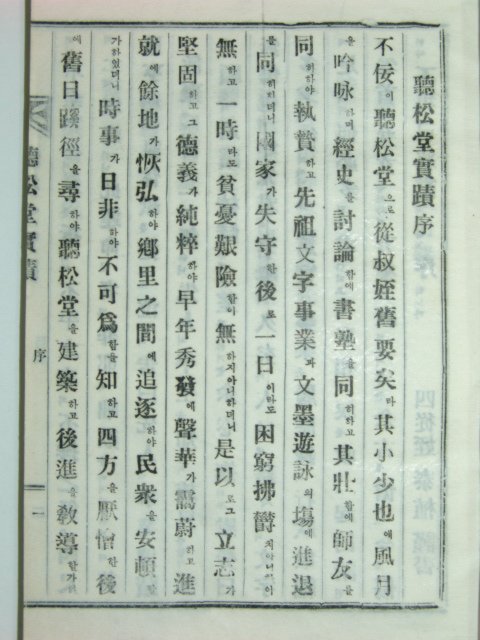 聽松堂實蹟序
不佞이聽松堂으로從叔姪舊要矣라其小少也에風月
을吟咏하며經史를討論함에書塾을同히하고其壯함에師友를
同히하야執贄하고先祖文字事業과文墨遊詠의場에進退
을同히하지더니國家가失守한後로一日이라도困窮拂鬱치아니하이
無하고一時라도貧憂艱險함이無하지아니하더니是以로그立志가
堅固하고그德義가純粹하야早年秀發에聲華가霱蔚하고進
就에餘地가恢弘하야鄕里之間에追逐하야民衆을安頓
가하엿더니時事가日非하야不可爲함을知하고四方을厭憎한後
에舊日蹊徑을尋하야聽松堂을建築하고後進을敎導할가
聽松堂實蹟
序
一